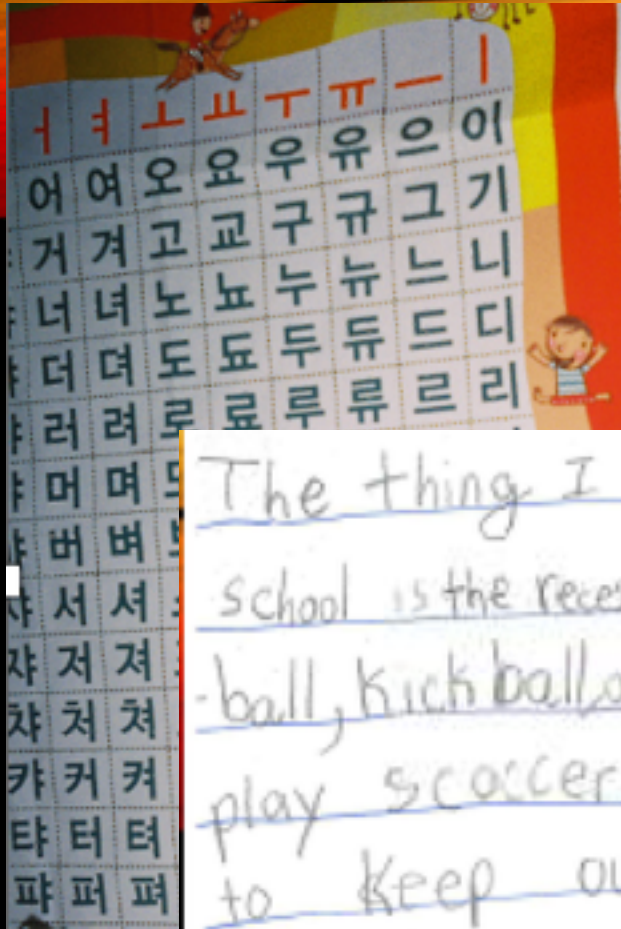 ㅓ ㅕ ㅗ ㅛ ㅜ ㅠ ㅡ ㅣ
어 여 오 요 우 유 으 이
거 겨 고 교 구 규 그 기
너 녀 노 뇨 누 뉴 느 니
더 뎌 도 됴 두 듀 드 디
러 려 로 료 루 류 르 리
머 며
버 벼
샤 서 셔
쟈 저 져
챠 처 쳐
캬 커 켜
탸 터 텨
퍄 퍼 펴
The thing I
school is the
ball, Kick ball,
play scoccer
to keep